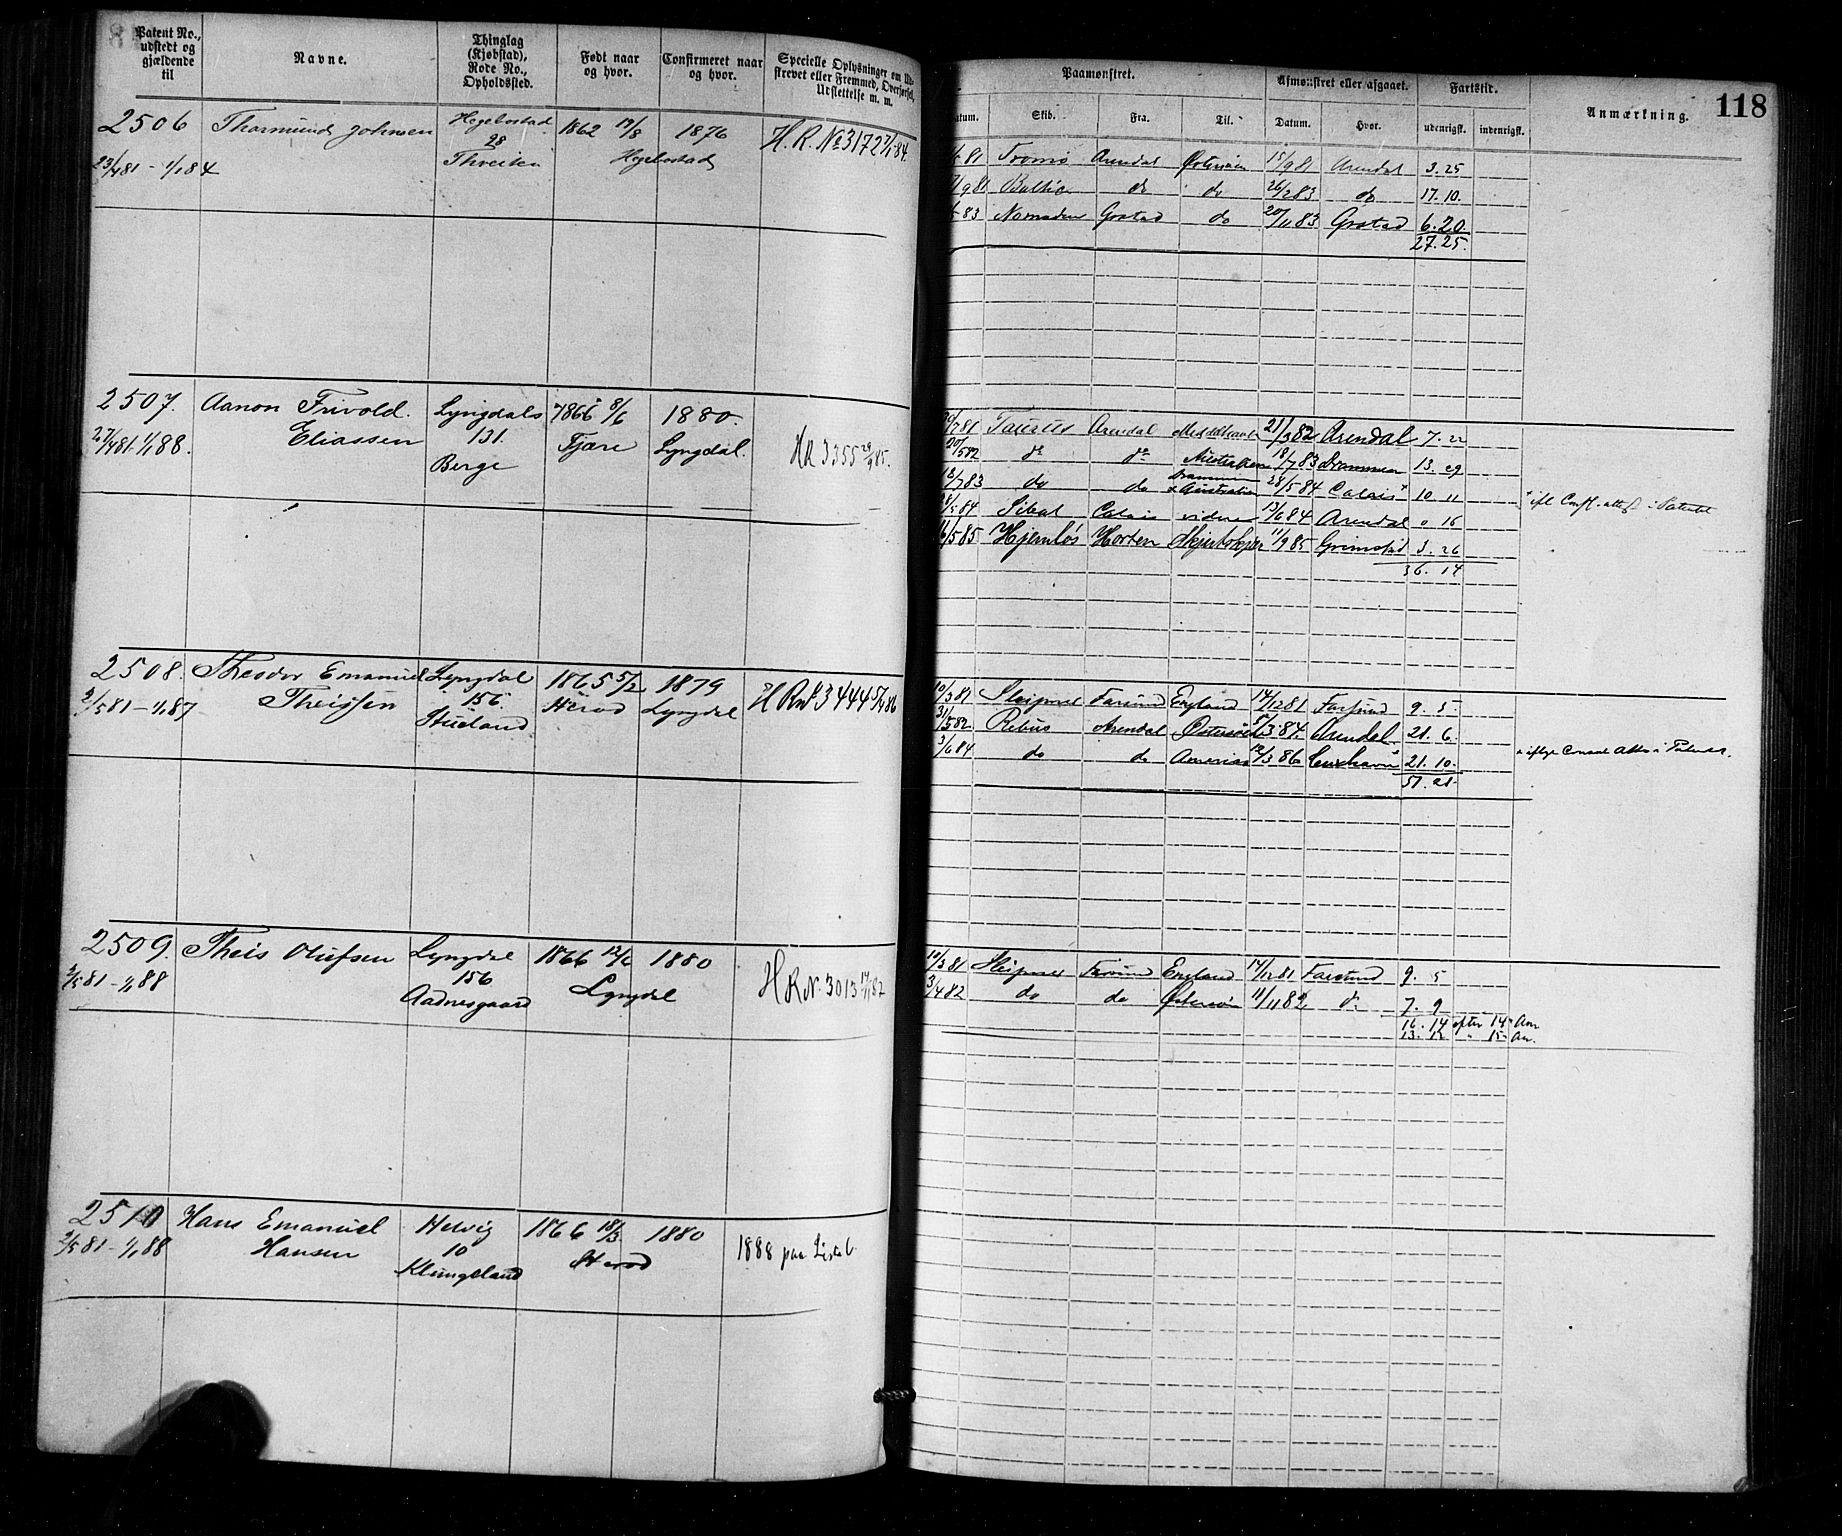 Patent No., udstedt og gjældende til
Navne.
Thinglag (Kjøbstad), Rode No., Opholdssted.
Født naar og hvor.
Confirmeret naar og hvor.
Specielle Oplysninger om Udstrevet eller Fremmed, Overførsel, Udslettelse m. m.
2506 Thormund Johnsen Hegebostad 1862 19/8 1876 H. R. No 3172
28
23/4 81 - 1/1 84 Hegebostad
2507. Aanon Frivold Lyngdals 1866 8/6 1880.
27/4 81 - 1/1 88. Eliassen 131. Fjære Lyngdal. HR 3355 29/9 85.
Berge
2508. Theodor Emanuel Lyngdal 1865 5/2 1879 H RNo 3444 5/4 86
2/5 81 - 1/1 87 Theissen 156. Herad Lyngdal
Stueland
2509. Theis Olufsen Lyngdal 1866 12/6 1880
2/5 81 - 1/1 88 156 Lyngdal H R N. 3013
Aadnesgaard
2510 Hans Emanuel Helvig 1866 18/3 1880
2/5 81 - 1/1 88 Hansen 10 Herad 1888 paa Lista
Klungeland
118
Paamønstret.
Afmønstret eller afgaaet.
Fartstid.
Anmærkning.
atum. Skib. Fra. Til. Datum. Hvor. udenrigsk. indenrigsk.
81 Tromø Arendal Østersøen 15/9 81 Arendal 3. 25
/9 81 Baltic do do 26/2 83 do 17. 10.
83 Nomaden Grstad do 20/11 83 Grstad 6. 20
27. 25.
/7 81 Taurus Arendal Middelhavet 21/3 82 Arendal 7. 22
20/5 82 do do Australien 18/7 83 Drammen 13. 29
18/7 83 do do Drammen & Australien 28/5 84 Calais x 10 11
28/5 84 Sibal Calais videre 13/6 84 Arendal " 16
16/5 85 Hjemløs Horten 11/9 85 Grimstad 3. 26
36. 14
10/3 81 Sleipner Farsund England 14/12 81 Farsund 9. 5
31/5 82 Rebus Arendal Østersøen 5/3 84. Arendal 21. 6.
3/6 84 do do America 12/3 86 Cuxhavn x 21. 10.
51. 21
10/3 81 Sleipner Farsund England 14/12 81 Farsund 9. 5
3/4 82 do do Østersøen 11/11 82 do 7. 9
16. 14 efter 14 Aar
13. 12 " 15 Aar